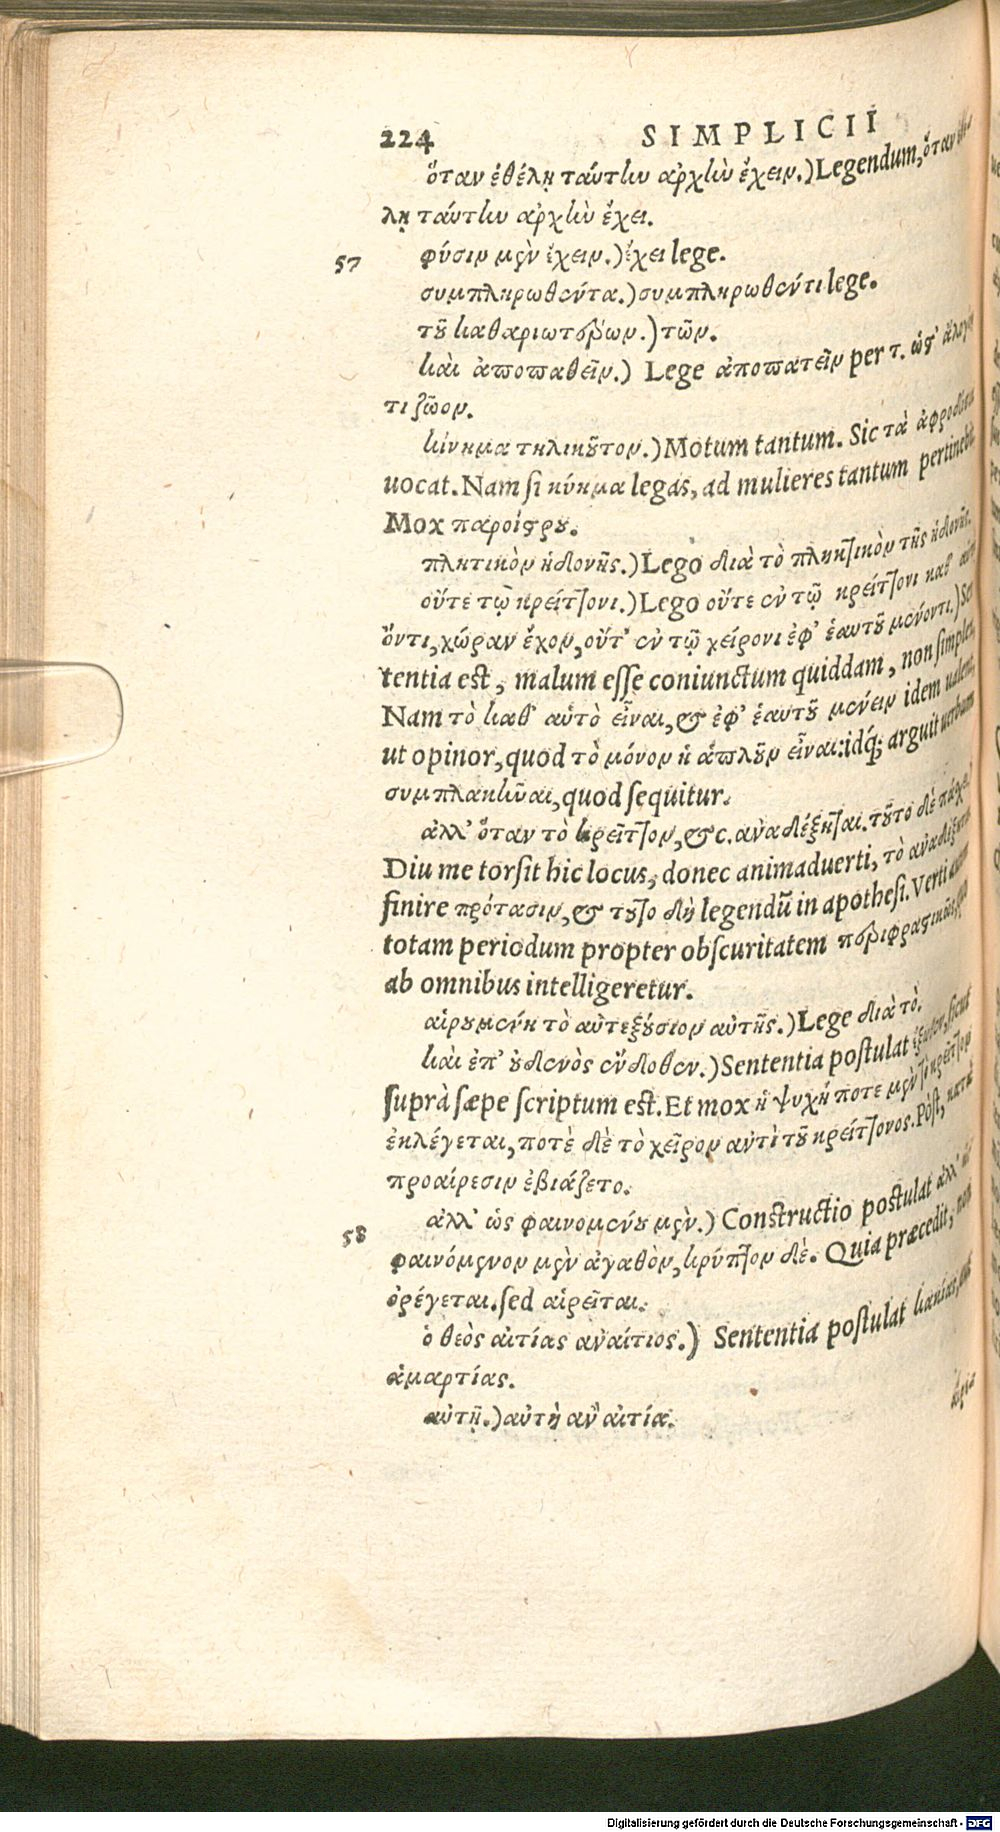 224 SIMPLICII
ὅταν ἐθέλῃ ταύτην ἀρχὴν ἔχειν.) Legendum, ὅταν ἐθέ-
λῃ ταύτην ἀρχὴν ἔχει.
57 φύσιν μὲν ἔχειν.) ἔχει lege.
συμπληρωθέντα.) συμπληρωθέντι lege.
τοῦ καθαριωτέρων.) τῶν.
καὶ ἀποπαθεῖν.) Lege ἀποπατεῖν per τ. ὡς
τι ζῶον.
κίνημα τηλικοῦτον.) Motum tantum. Sic τὰ ἀφροδίσια
uocat. Nam ſi κύημα legas, ad mulieres tantum pertinebit.
Mox παροίστρου.
πλητικὸν ἡδονῆς.) Lego διὰ τὸ πληκτικὸν τῆς ἡδονῆς.
οὔτε τῷ κρείττονι.) Lego οὔτε ἐν τῷ κρείττονι καθ' αὑτὸ
ὄντι, χώραν ἔχον, οὔτ' ἐν τῷ χείρονι ἐφ' ἑαυτοῦ μένοντι.) Sen
tentia est, malum eſſe coniunctum quiddam, non ſimplex,
Nam τὸ καθ' αὑτὸ εἶναι, & ἐφ' ἑαυτοῦ μένειν idem ualent,
ut opinor, quod τὸ μόνον ἢ ἁπλοῦν εἶναι: idq́; arguit uerbum
συμπλακῆναι, quod ſequitur.
ἀλλ' ὅταν τὸ κρεῖττον, &c. ἀναδέξηται. τοῦτο δὲ πάσχει.)
Diu me torſit hic locus, donec animaduerti, τὸ ἀναδέξηται
finire πρότασιν, & τοῦτο δὴ legendũ in apotheſi. Verti autem
totam periodum propter obſcuritatem περιφραστικῶς, quo
ab omnibus intelligeretur.
αἱρουμένη τὸ αὐτεξούσιον αὐτῆς.) Lege διὰ τὸ.
καὶ ἐπ' οὐδενὸς ἔνδοθεν.) Sententia poſtulat ἔξωθεν, ſicut
ſuprà ſæpe ſcriptum est. Et mox ἡ ψυχή ποτε μὲν τὸ κρεῖττον
ἐκλέγεται, ποτὲ δὲ τὸ χεῖρον ἀντὶ τοῦ κρείττονος. Pòſt, κατὰ
προαίρεσιν ἐβιάζετο.
58 ἀλλ' ὡς φαινομένου μὲν.) Constructio poſtulat ἀλλ' ὡς
φαινόμενον μὲν ἀγαθὸν, κρύπτον δὲ. Quia præcedit, non
ὀρέγεται. ſed αἱρεῖται.
ὁ θεὸς αἰτίας ἀναίτιος.) Sententia poſtulat κακίας, aut
ἁμαρτίας.
αὐτῇ.) αὐτὴ ἂν αἰτία.
Digitalisierung gefördert durch die Deutsche Forschungsgemeinschaft - DFG